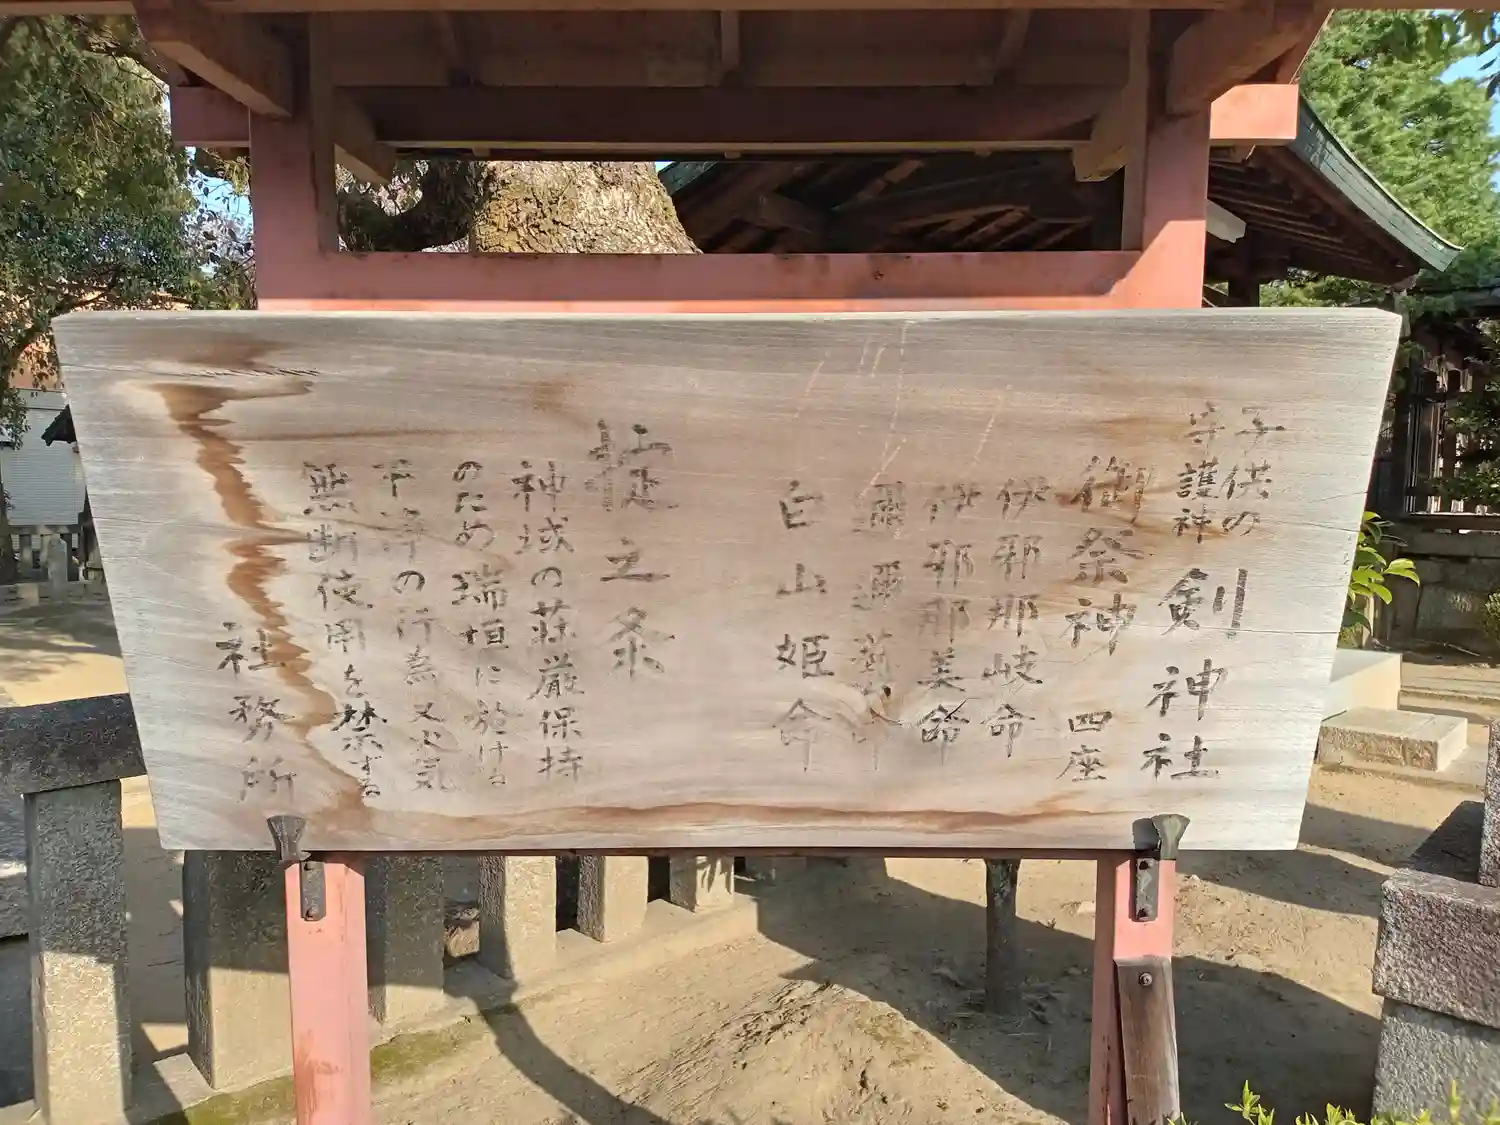 子供の
守護神
剣神社
御祭神 四座
伊邪那岐命
伊邪那美命
邇邇藝命
白山姫命
掟之条
神域の荘厳保持
のため瑞垣に於ける
不浄の行為又火気
無断使用を禁ずる
社務所